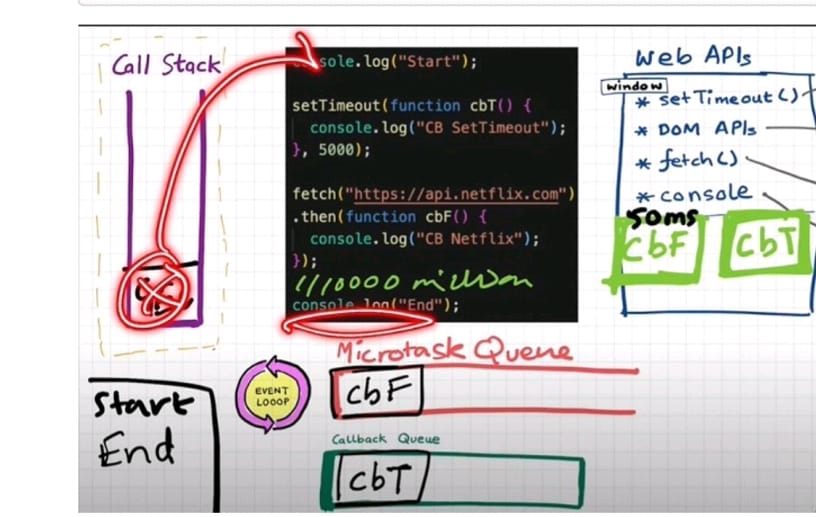 Call Stack
console.log("Start");
setTimeout(function cbT() {
console.log("CB SetTimeout");
}, 5000);
fetch("https://api.netflix.com")
.then(function cbF() {
console.log("CB Netflix");
});
console.log("End");
Web APIs
window
* setTimeout()
* DOM APIs
* fetch()
* console
50ms
cbF
cbT
Microtask Queue
cbF
EVENT
LOOOP
Callback Queue
cbT
Start
End